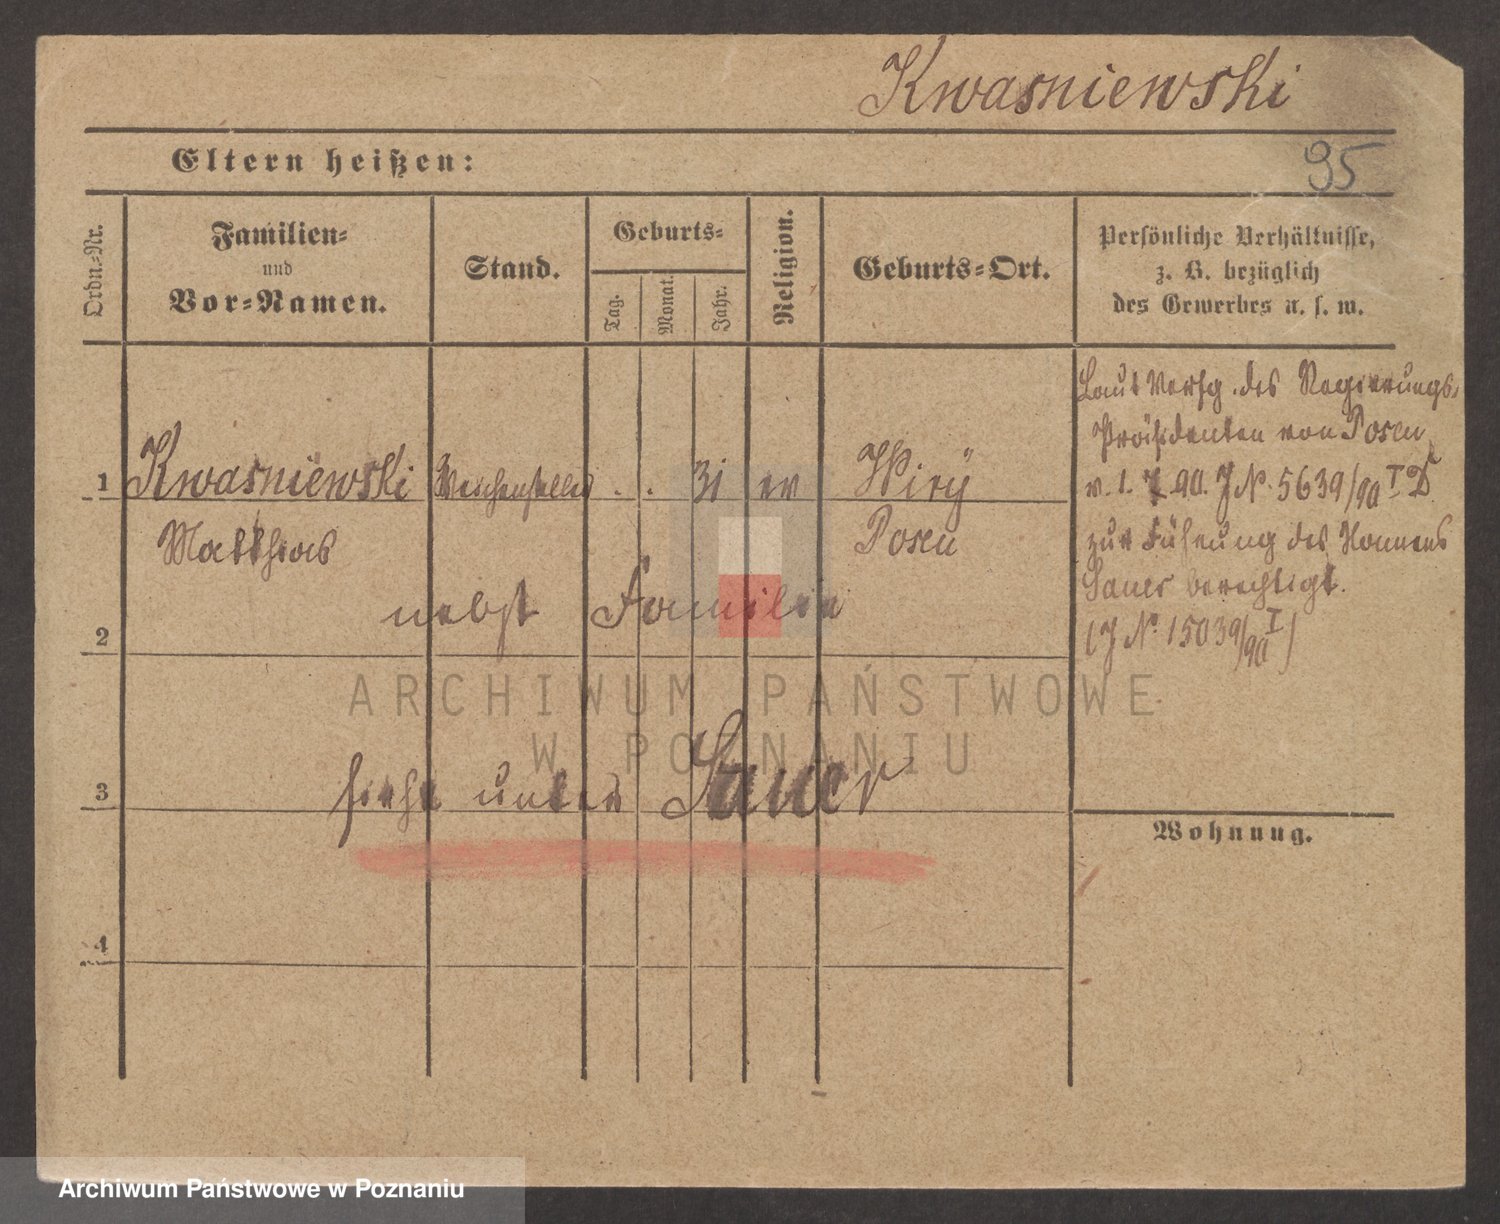 Kwasniewski
Eltern heißen:
95
Ordn.-Nr.
Familien-
und
Vor-Namen.
Stand.
Geburts-
Tag.
Monat.
Jahr.
Religion.
Geburts-Ort.
Persönliche Verhältnisse,
z. B. bezüglich
des Gewerbes u. s. w.
1
Kwasniewski
Weichensteller
. . 31
ev
Wiry
Matthias
Posen
Laut Verfg. des Regierungs-
Präsidenten von Posen
v. 1. 7. 90. J № 5639/90 I D
zur Führung des Namens
Sauer berechtigt.
(J № 15039/90 I)
2
nebst Familie
ARCHIWUM PAŃSTWOWE
W POZNANIU
3
siehe unter Sauer
Wohnung.
4
Archiwum Państwowe w Poznaniu